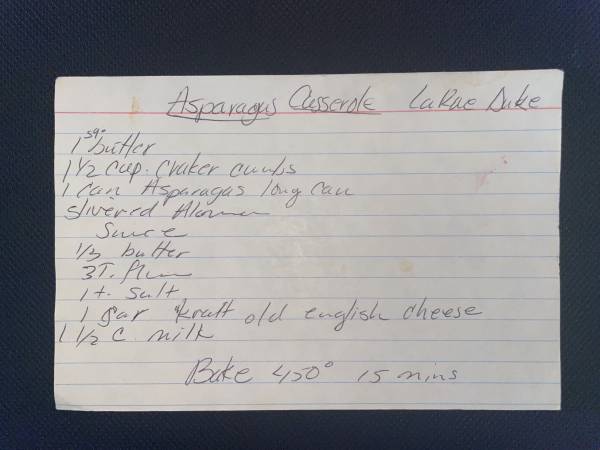 Asparagus Casserole LaRae Duke
1 sq. butter
1 1/2 cup. craker cumbs
1 can Asparagus long can
slivered Almon
Sauce
1/3 butter
3 T. flour
1 t. salt
1 jar Kraft old english cheese
1 1/2 c. milk
Bake 450° 15 mins